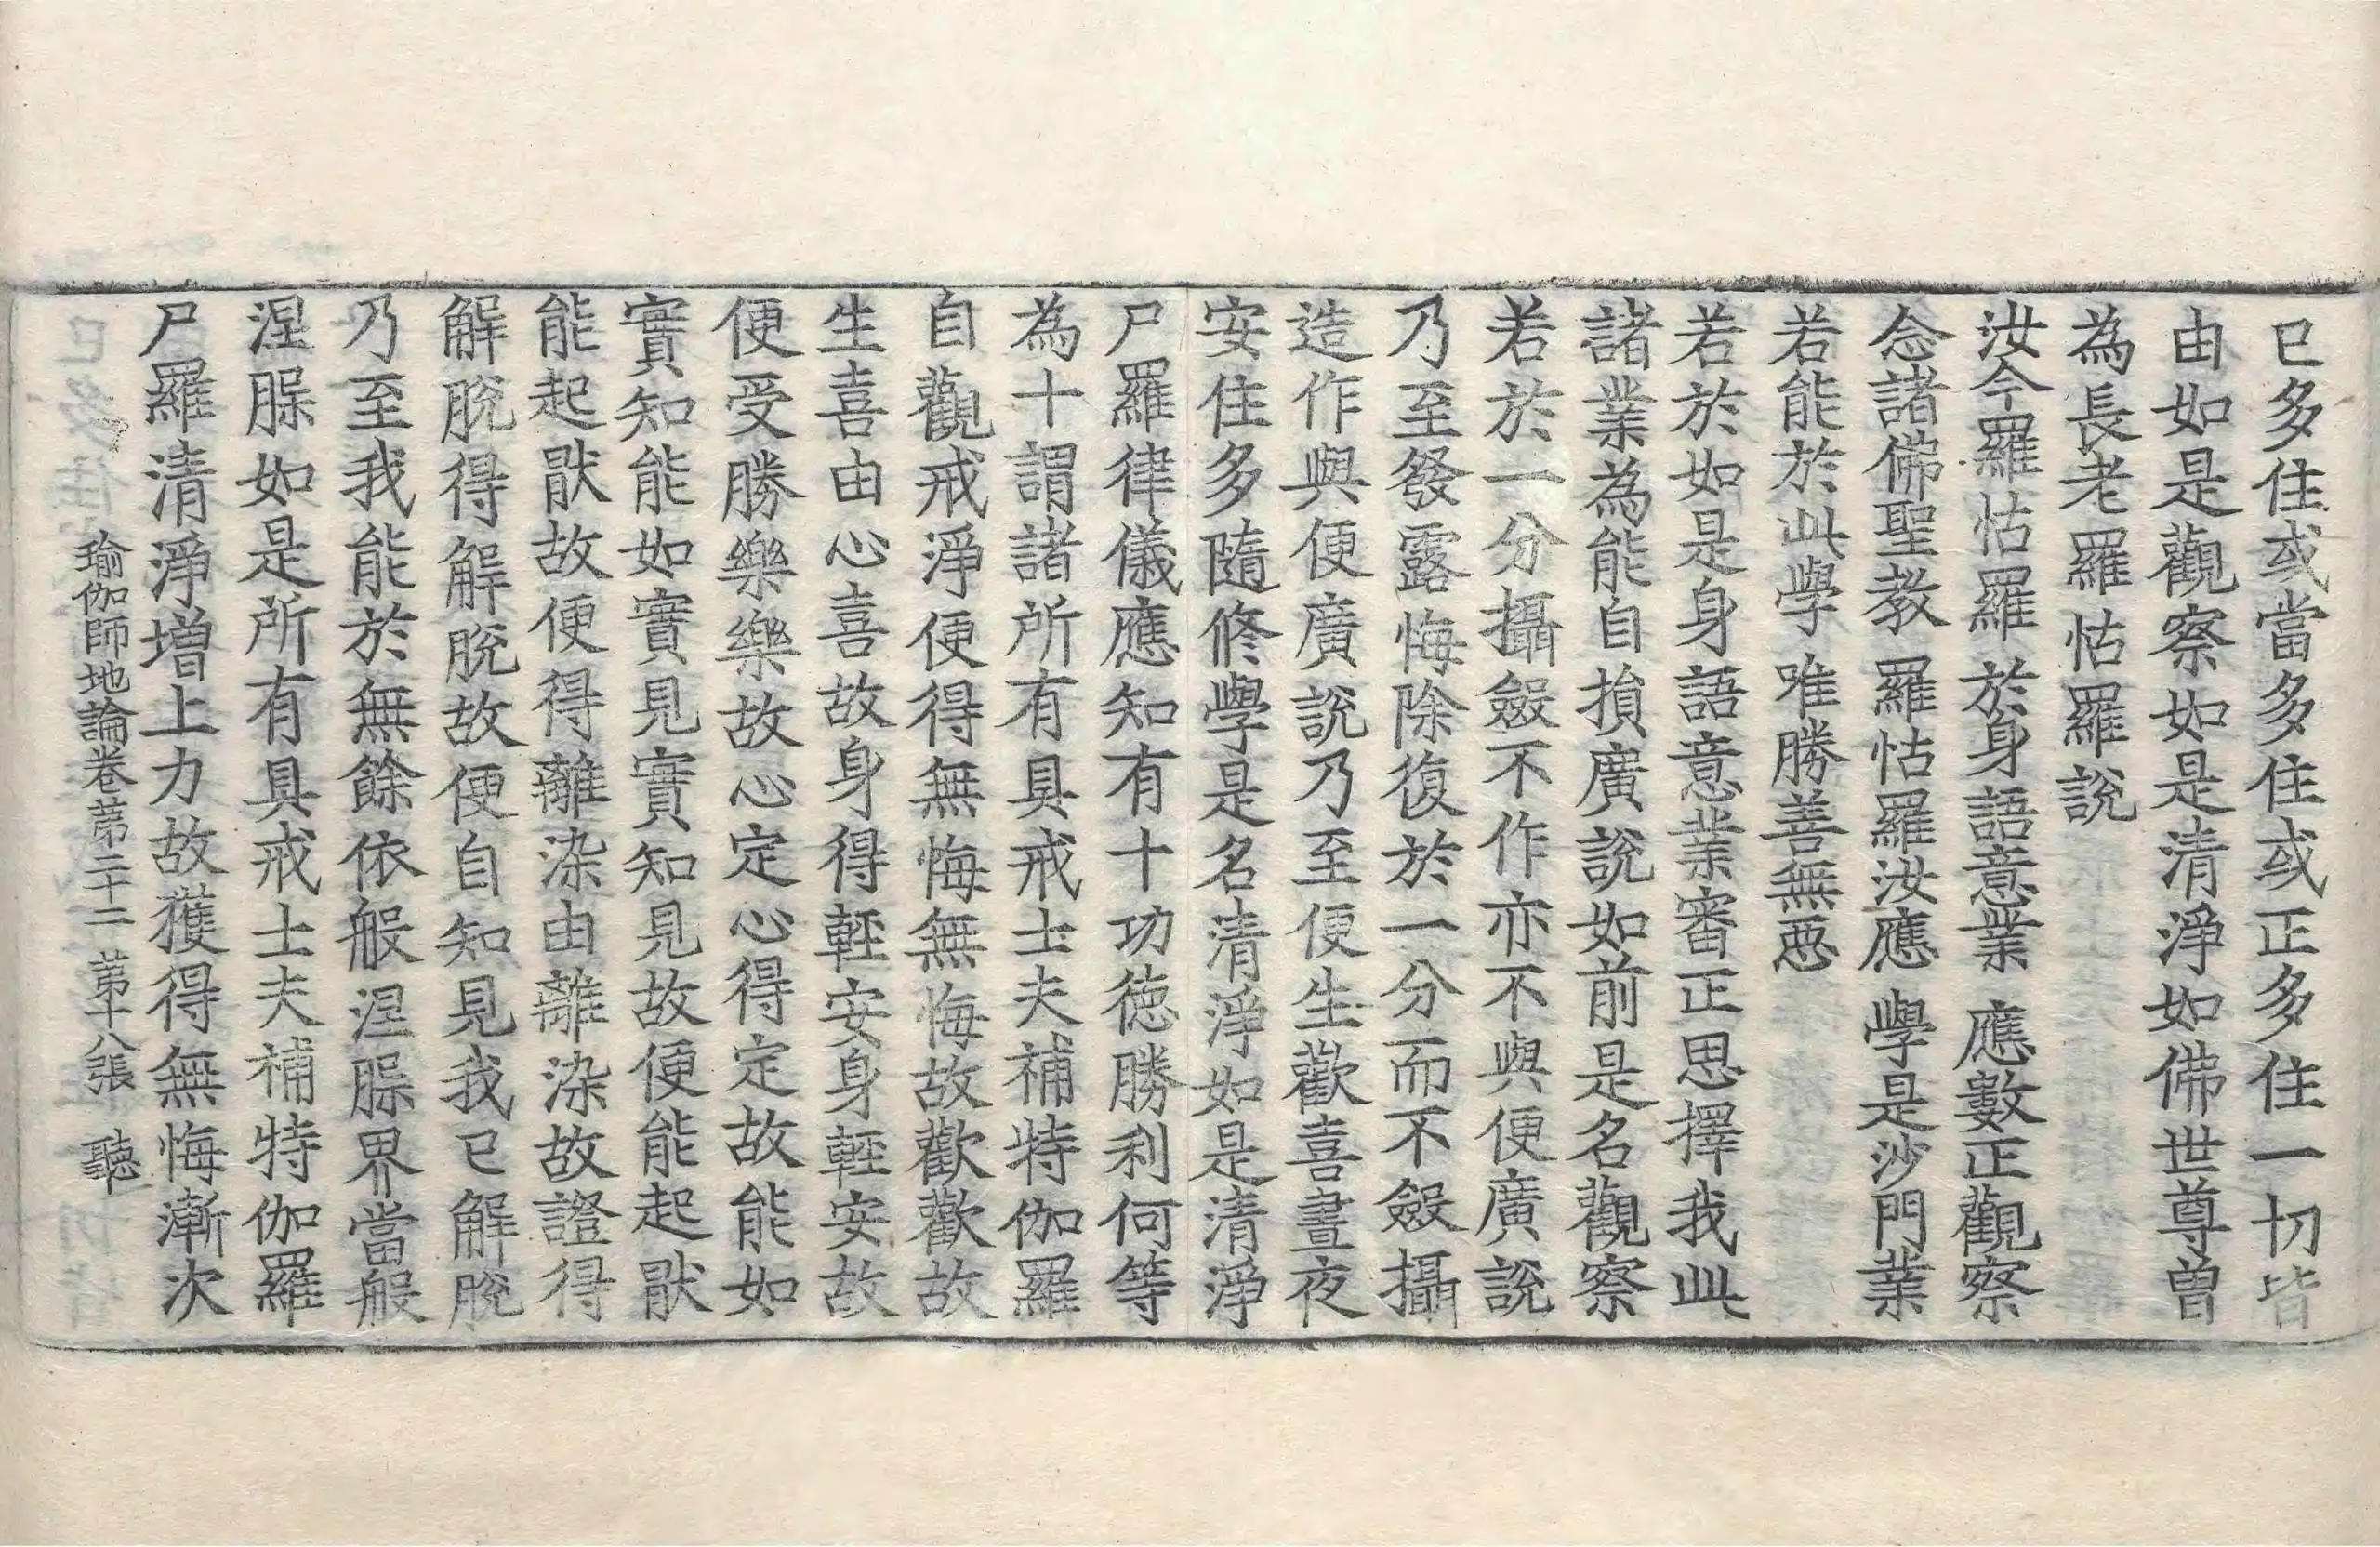 已多住或當多住或正多住一切皆
由如是觀察如是清淨如佛世尊曾
為長老羅怙羅說
汝今羅怙羅 於身語意業 應數正觀察
念諸佛聖教 羅怙羅汝應 學是沙門業
若能於此學 唯勝善無惡
若於如是身語意業審正思擇我此
諸業為能自損廣說如前是名觀察
若於一分攝斂不作亦不與便廣說
乃至發露悔除復於一分而不斂攝
造作與便廣說乃至便生歡喜晝夜
安住多隨修學是名清淨如是清淨
尸羅律儀應知有十功德勝利何等
為十謂諸所有具戒士夫補特伽羅
自觀戒淨便得無悔無悔故歡歡故
生喜由心喜故身得輕安身輕安故
便受勝樂樂故心定心得定故能如
實知能如實見實知見故便能起猒
能起猒故便得離染由離染故證得
解脫得解脫故便自知見我已解脫
乃至我能於無餘依般涅槃界當般
涅槃如是所有具戒士夫補特伽羅
尸羅清淨增上力故獲得無悔漸次
瑜伽師地論卷第二十二 第十八張 聽